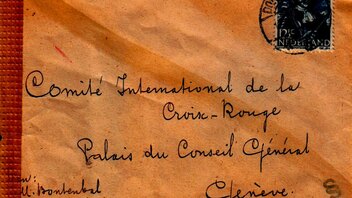 NEDERLAND
Comité International de la
Croix-Rouge
Palais du Conseil Général
Genève.
Bontenbal